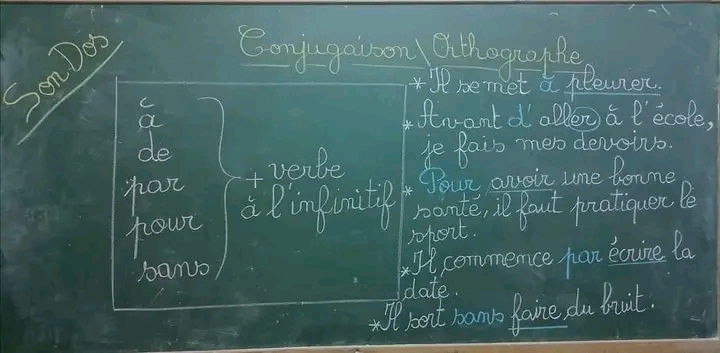 SonDos
Conjugaison\Orthographe
à
de
par
pour
sans
+ verbe
à l'infinitif
* Il se met à pleurer.
* Avant d'aller à l'école,
je fais mes devoirs.
* Pour avoir une bonne
santé, il faut pratiquer le
sport.
* Il commence par écrire la
date.
* Il sort sans faire du bruit.